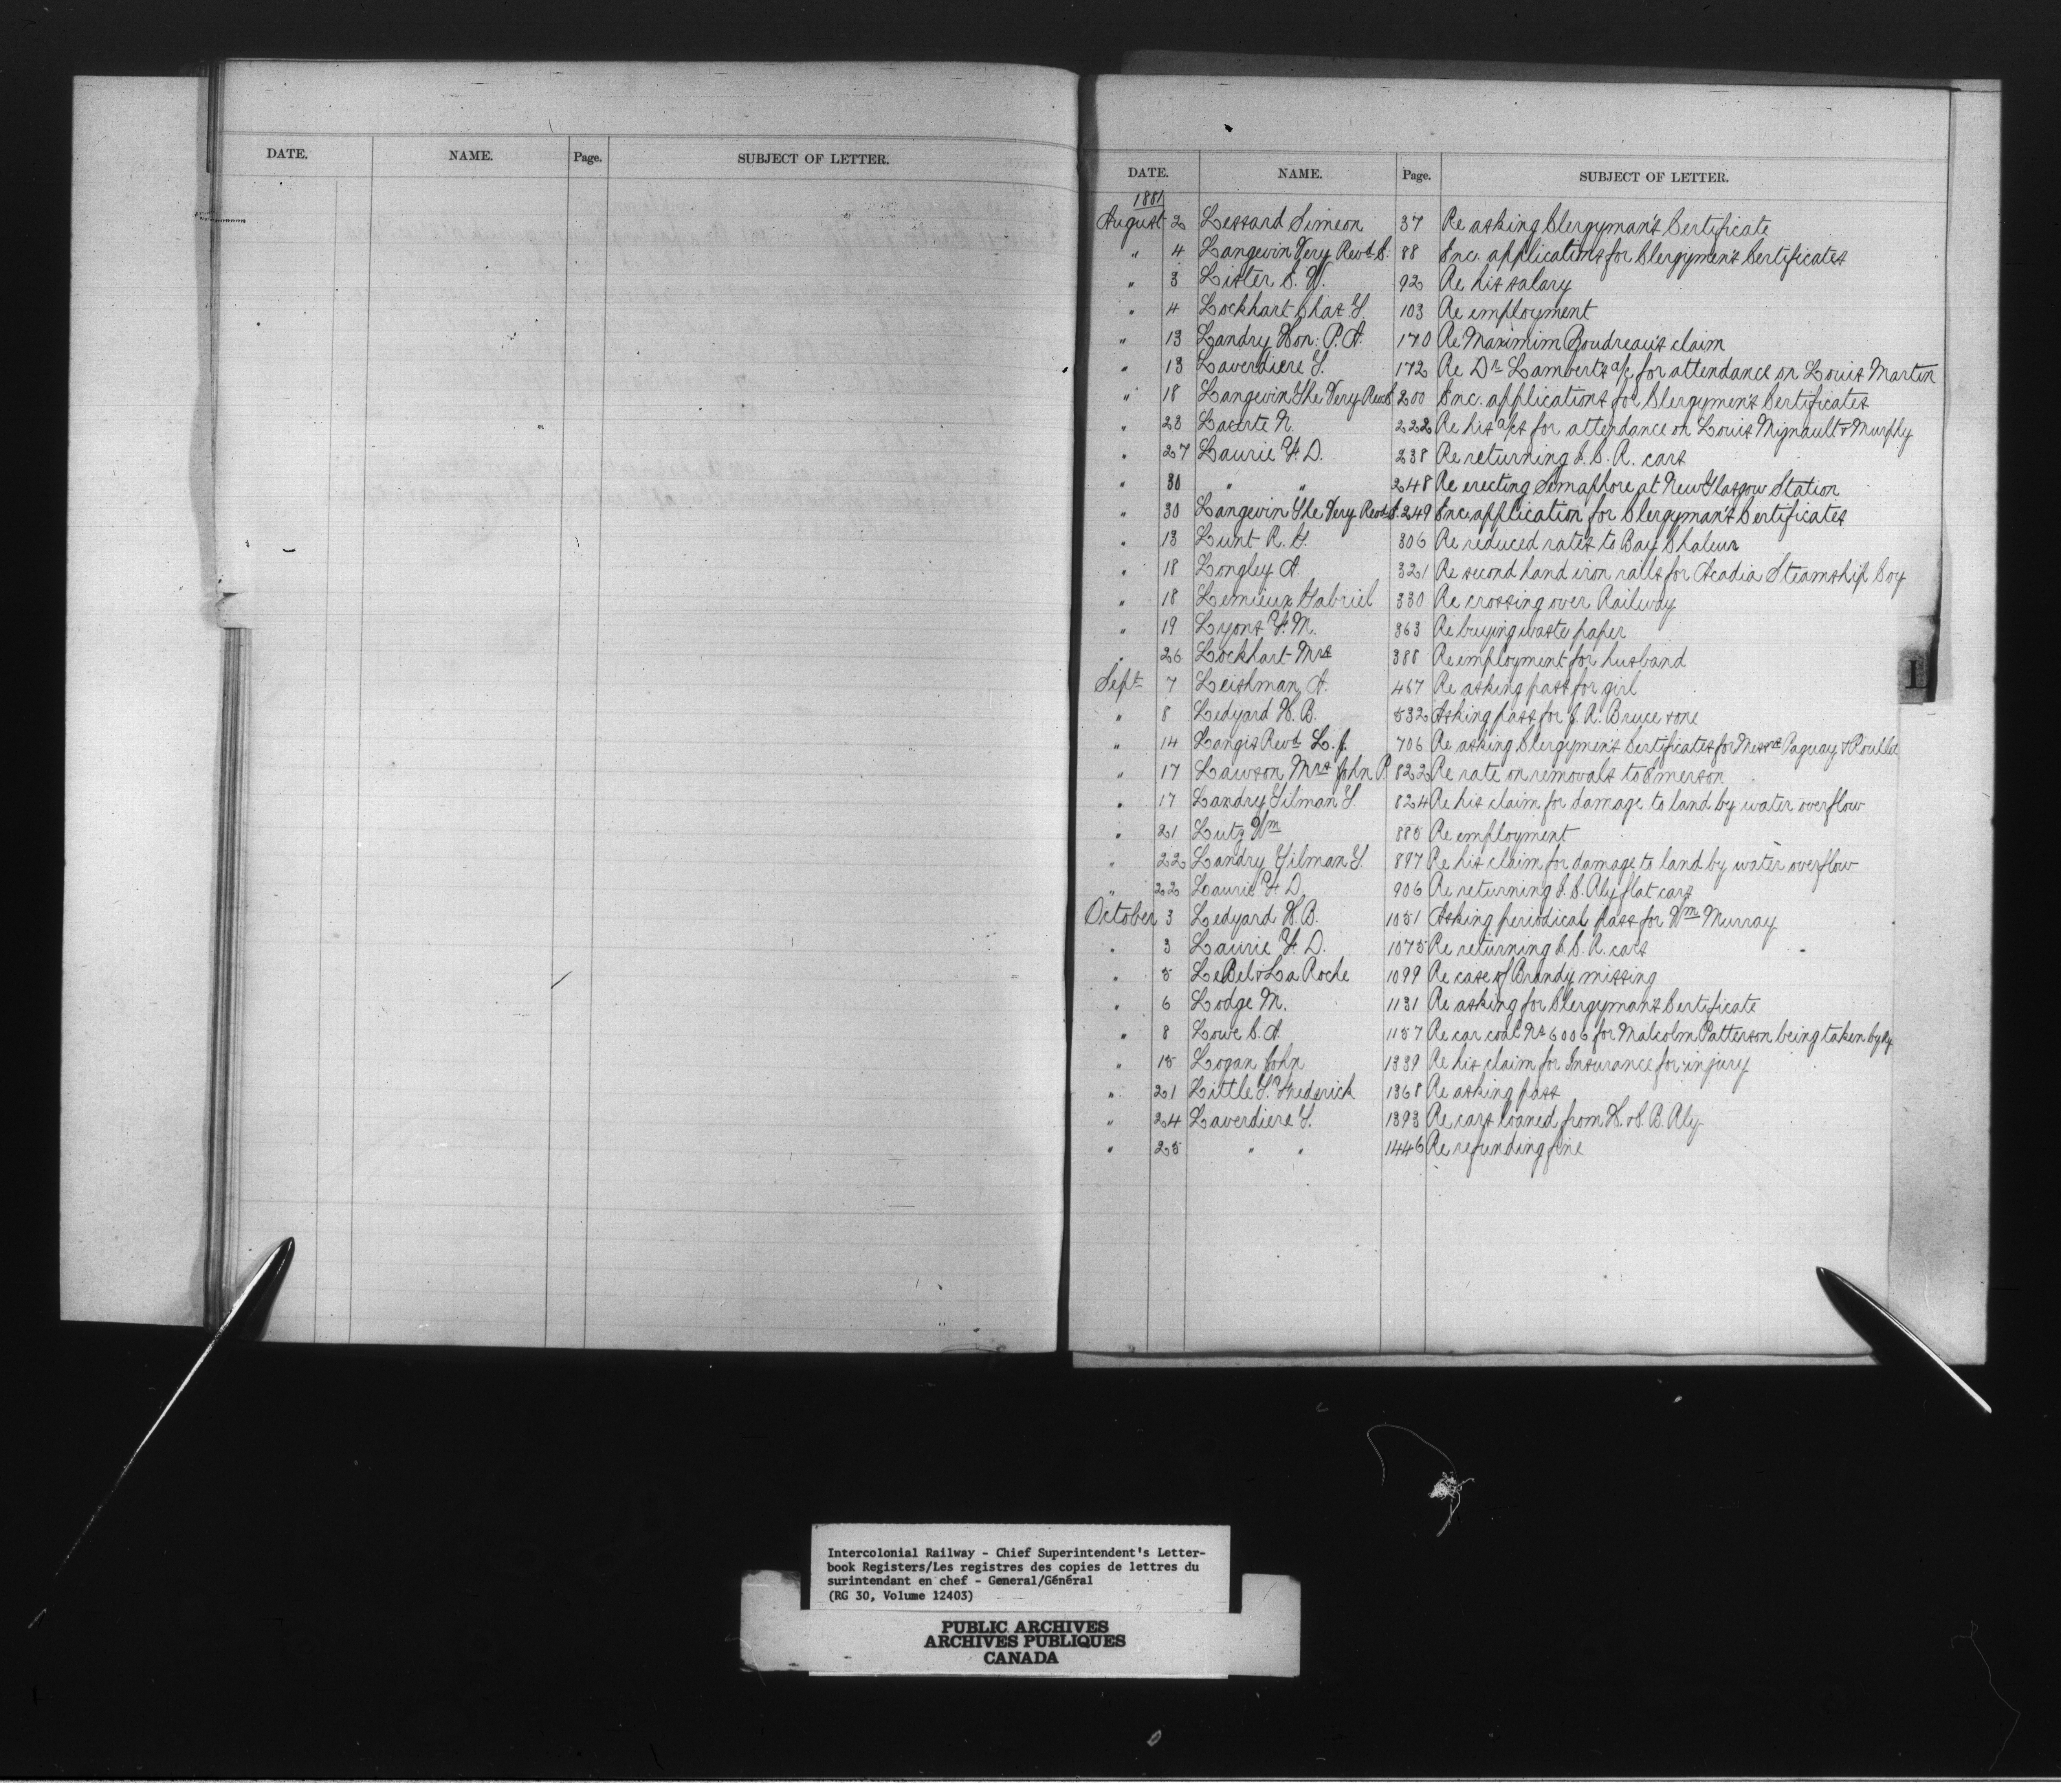 DATE. NAME. Page. SUBJECT OF LETTER.
DATE. NAME. Page. SUBJECT OF LETTER.
1881
August 2 Lessard Simeon 37 Re asking Clergyman's Certificate
" 4 Langevin Very Revd. C. 88 Enc. applications for Clergymen's Certificates
" 3 Lister C. W. 92 Re his salary
" 4 Lockhart Chas. T. 103 Re employment
" 13 Landry Hon. P. A. 170 Re Maximim Boudreau's claim
" 13 Laverdiere T. 172 Re Dr Lambert's a/c for attendance on Louis Martin
" 18 Langevin The Very Revd 200 Enc. applications for Clergymen's Certificates
" 23 Lacerte N. 222 Re his a/cs for attendance on Louis Mignault & Murphy
" 27 Laurie F. D. 238 Re returning I. C. R. cars
" 30 " " 248 Re erecting Semaphore at New Glasgow Station
" 30 Langevin The Very Revd C. 249 Enc. application for Clergyman's Certificates
" 13 Lunt R. G. 306 Re reduced rates to Bay Chaleur
" 18 Longley A. 321 Re second hand iron rails for Acadia Steamship Coy
" 18 Lemieux Gabriel 330 Re crossing over Railway
" 19 Lyons F. M. 363 Re buying waste paper
" 26 Lockhart Mrs 388 Re employment for husband
Sept. 7 Leishman A. 467 Re asking pass for girl
" 8 Ledyard H. B. 532 Asking pass for J. R. Bruce & one
" 14 Langis Revd L. J. 706 Re asking Clergymen's Certificates for Messrs Paquay &
" 17 Lawson Mrs John P. 822 Re rate on removals to Emerson
" 17 Landry Gilman T. 824 Re his claim for damage to land by water overflow
" 21 Lutz Wm 885 Re employment
" 22 Landry Gilman T. 897 Re his claim for damage to land by water overflow
" 22 Laurie F. D. 906 Re returning I. C. Rly flat cars
October 3 Ledyard H. B. 1051 Asking periodical pass for Wm Murray
" 3 Laurie F. D. 1075 Re returning I. C. R. cars
" 5 LeBel & La Roche 1099 Re case of Brandy missing
" 6 Lodge M. 1131 Re asking for Clergyman's Certificate
" 8 Lowe C. A. 1157 Re car coal No 6006 for Malcolm Patterson being taken by Ry
" 15 Logan John 1339 Re his claim for Insurance for injury
" 21 Little T. Frederick 1368 Re asking pass
" 24 Laverdiere T. 1393 Re cars loaned from H. & S. B. Rly
" 25 " " 1446 Re refunding fine
L
Intercolonial Railway - Chief Superintendent's Letter-
book Registers/Les registres des copies de lettres du
surintendant en chef - General/Général
(RG 30, Volume 12403)
PUBLIC ARCHIVES
ARCHIVES PUBLIQUES
CANADA